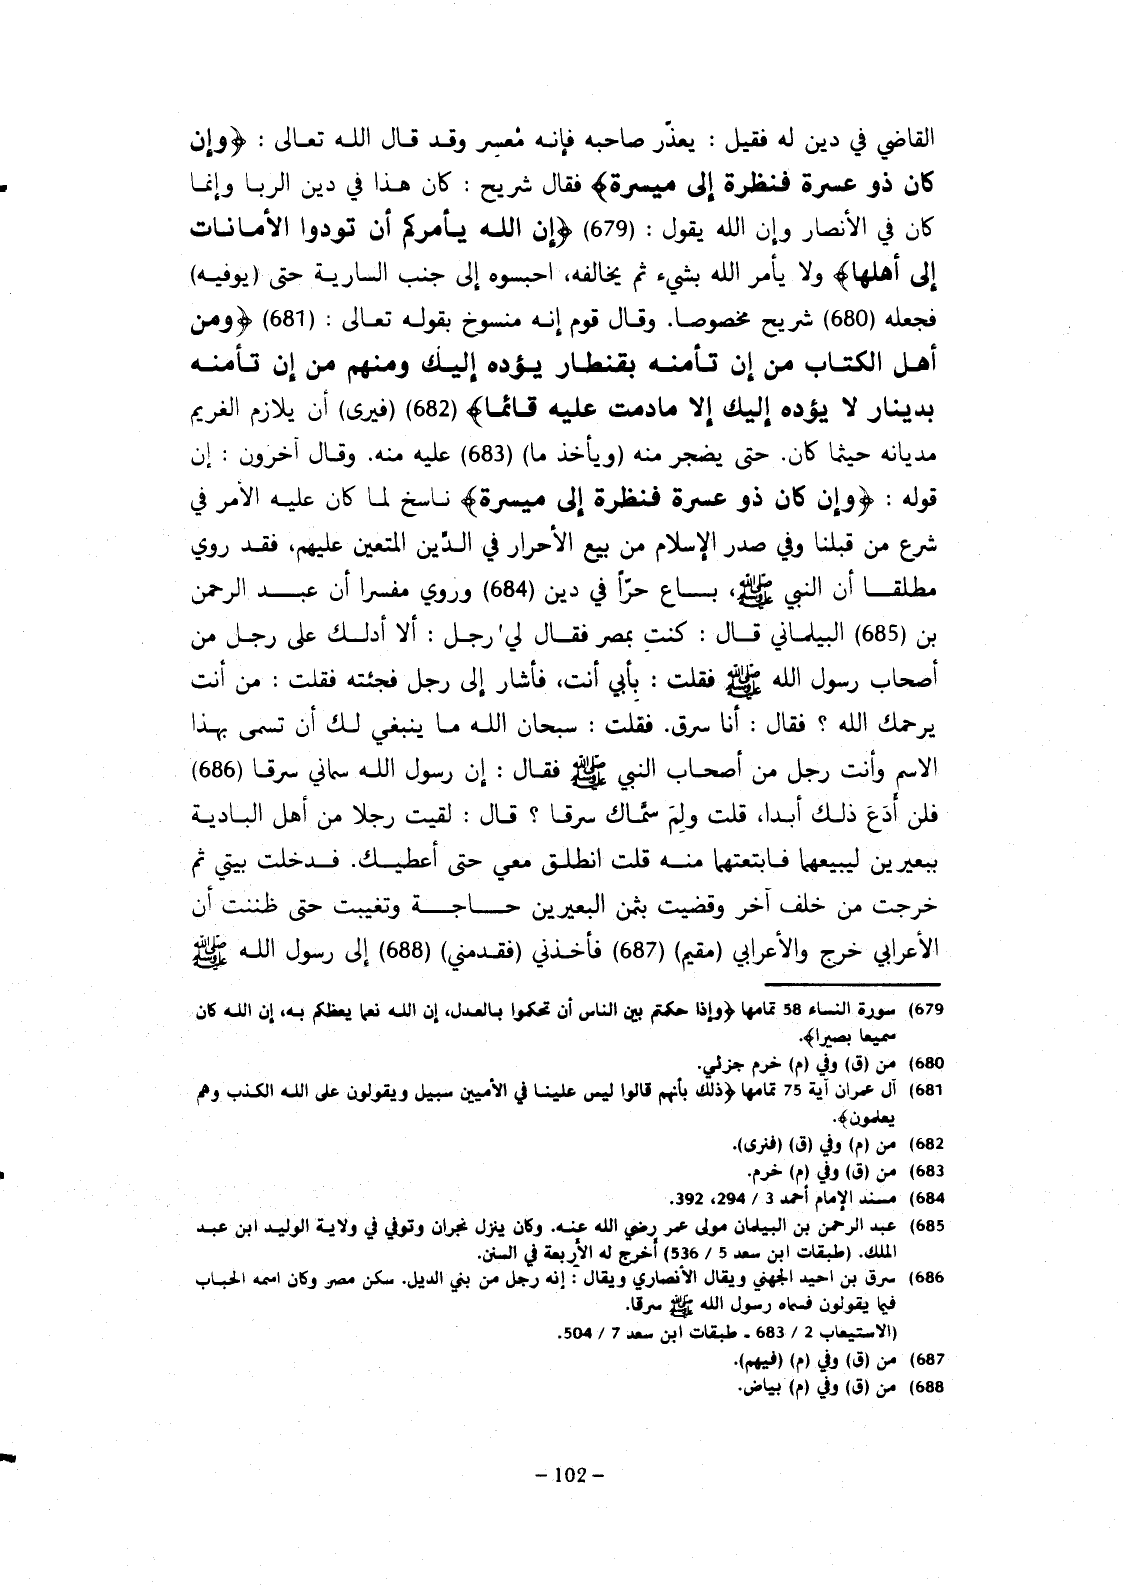 القاضي في دين له فقيل : يعذّر صاحبه فإنه مُعسِر وقد قال الله تعالى : ﴿وإن
كان ذو عسرة فنظرة إلى ميسرة﴾ فقال شريح : كان هذا في دين الربا وإنما
كان في الأنصار وإن الله يقول : (679) ﴿إن الله يأمركم أن تودوا الأمانات
إلى أهلها﴾ ولا يأمر الله بشيء ثم يخالفه، احبسوه إلى جنب السارية حتى (يوفيه)
فجعله (680) شريح مخصوصا. وقال قوم إنه منسوخ بقوله تعالى : (681) ﴿ومن
أهل الكتاب من إن تأمنه بقنطار يؤده إليك ومنهم من إن تأمنه
بدينار لا يؤده إليك إلا مادمت عليه قائما﴾ (682) (فيرى) أن يلازم الغريم
مديانه حيثما كان. حتى يضجر منه (ويأخذ ما) (683) عليه منه. وقال آخرون : إن
قوله : ﴿وإن كان ذو عسرة فنظرة إلى ميسرة﴾ ناسخ لما كان عليه الأمر في
شرع من قبلنا وفي صدر الإسلام من بيع الأحرار في الدّين المتعين عليهم، فقد روي
مطلقا أن النبي ﷺ، باع حرّاً في دين (684) وروي مفسرا أن عبد الرحمن
بن (685) البيلماني قال : كنت بمصر فقال لي رجل : ألا أدلك على رجل من
أصحاب رسول الله ﷺ فقلت : بأبي أنت، فأشار إلى رجل فجئته فقلت : من أنت
يرحمك الله ؟ فقال : أنا سرق. فقلت : سبحان الله ما ينبغي لك أن تسمى بهذا
الاسم وأنت رجل من أصحاب النبي ﷺ فقال : إن رسول الله سماني سرقا (686)
فلن أَدَعَ ذلك أبدا، قلت ولِمَ سمَّاك سرقا ؟ قال : لقيت رجلا من أهل البادية
ببعيرين ليبيعهما فابتعتهما منه قلت انطلق معي حتى أعطيك. فدخلت بيتي ثم
خرجت من خلف آخر وقضيت بثمن البعيرين حاجة وتغيبت حتى ظننت أن
الأعرابي خرج والأعرابي (مقيم) (687) فأخذني (فقدمني) (688) إلى رسول الله ﷺ
679) سورة النساء 58 تمامها ﴿وإذا حكمتم بين الناس أن تحكموا بالعدل، إن الله نعما يعظكم به، إن الله كان
سميعا بصيرا﴾.
680) من (ق) وفي (م) خرم جزئي.
681) آل عمران آية 75 تمامها ﴿ذلك بأنهم قالوا ليس علينا في الأميين سبيل ويقولون على الله الكذب وهم
يعلمون﴾.
682) من (م) وفي (ق) (فنرى).
683) من (ق) وفي (م) خرم.
684) مسند الإمام أحمد 3 / 294، 392.
685) عبد الرحمن بن البيلمان مولى عمر رضي الله عنه. وكان ينزل نجران وتوفي في ولاية الوليد ابن عبد
الملك. (طبقات ابن سعد 5 / 536) أخرج له الأربعة في السنن.
686) سرق بن احيد الجهني ويقال الأنصاري ويقال : إنه رجل من بني الديل. سكن مصر وكان اسمه الحباب
فيما يقولون فسماه رسول الله ﷺ سرقا.
(الاستيعاب 2 / 683 ـ طبقات ابن سعد 7 / 504.
687) من (ق) وفي (م) (فيهم).
688) من (ق) وفي (م) بياض.
– 102 –